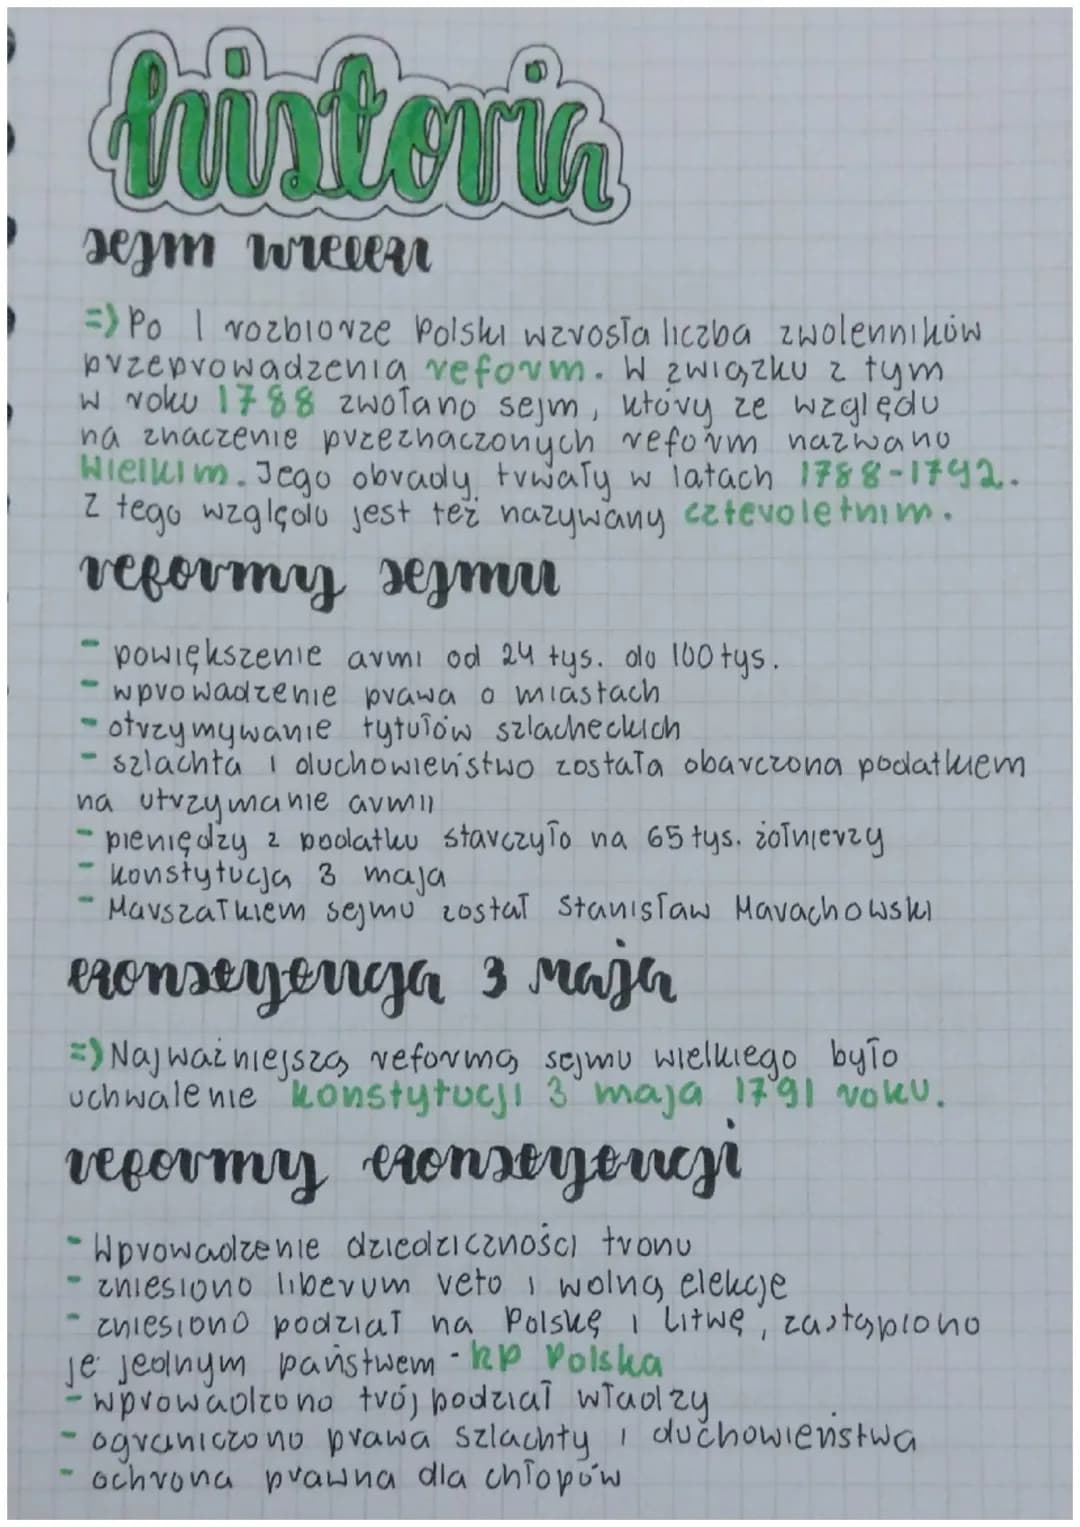 historia
sejm wielki
=> Po I rozbiorze Polski wzrosła liczba zwolenników
przeprowadzenia reform. W związku z tym
w roku 1788 zwołano sejm, który ze względu
na znaczenie przeznaczonych reform nazwano
Wielkim. Jego obrady trwały w latach 1788-1792.
Z tego względu jest też nazywany czteroletnim.
reformy sejmu
- powiększenie armi od 24 tys. do 100 tys.
- wprowadzenie prawa o miastach
- otrzymywanie tytułów szlacheckich
- szlachta i duchowieństwo została obarczona podatkiem
na utrzymanie armii
- pieniędzy z podatku starczyło na 65 tys. żołnierzy
- konstytucja 3 maja
- Marszałkiem sejmu został Stanisław Marachowski
konstytucja 3 maja
=> Najważniejszą reformą sejmu wielkiego było
uchwalenie konstytucji 3 maja 1791 roku.
reformy konstytucji
- Wprowadzenie dziedziczności tronu
- zniesiono liberum veto i wolną elekcje
- zniesiono podział na Polskę i Litwę, zastąpiono
je jednym państwem - RP Polska
- wprowadzono trój podział władzy
- ograniczono prawa szlachty i duchowieństwa
- ochrona prawna dla chłopów